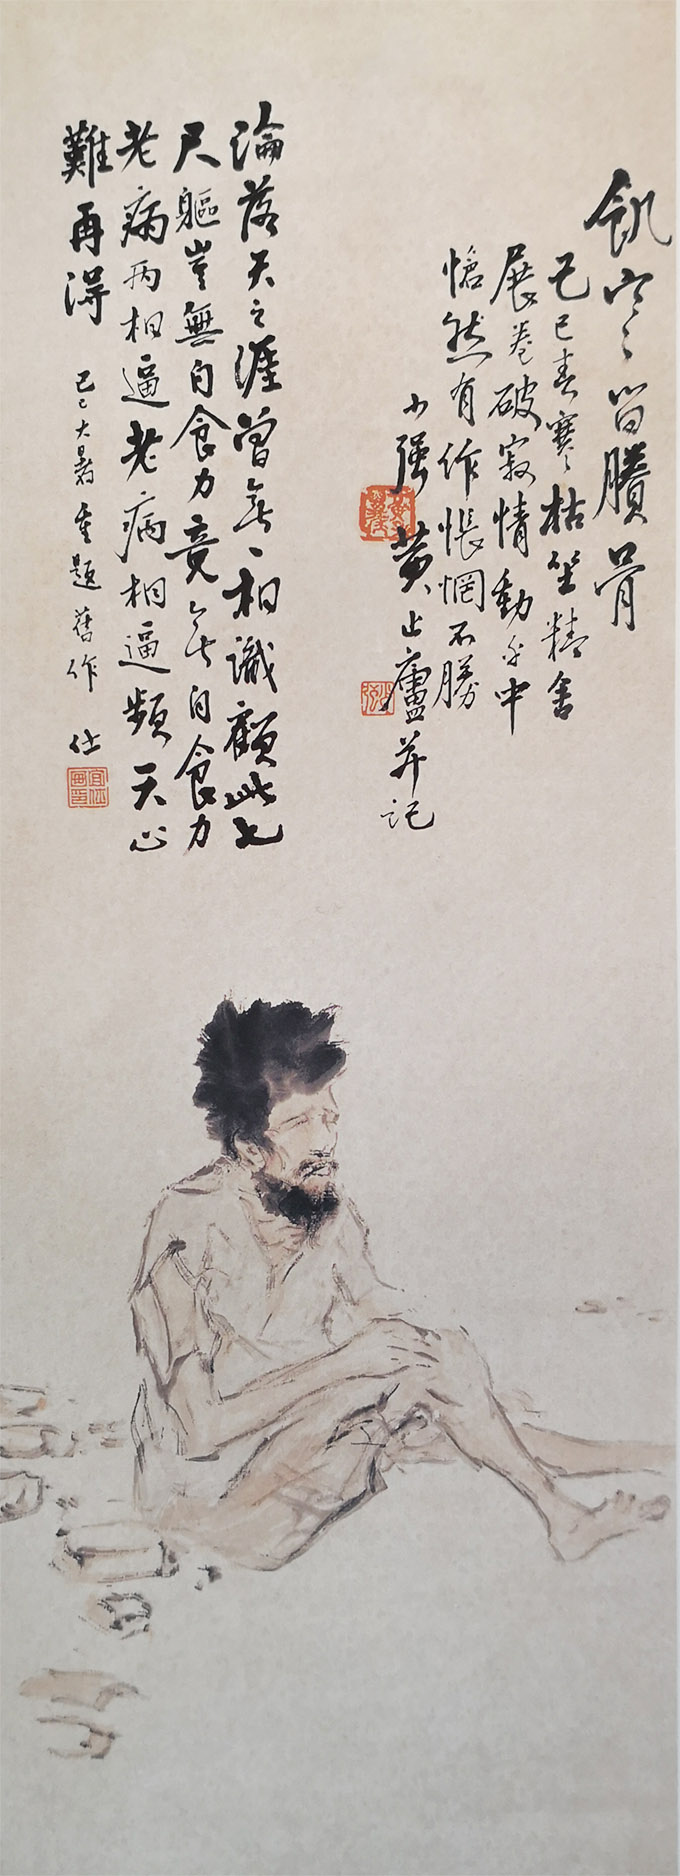 飢寒留賸骨
己巳春寒枯坐精舍
展卷破寂情動乎中
愴然有作悵惘不勝
少强黃止廬并記
淪落天之涯曾無一相識顧此七
尺軀豈無自食力竟無自食力
老病兩相逼老病相逼頻天心
難再得 己巳大暑重題舊作 仕